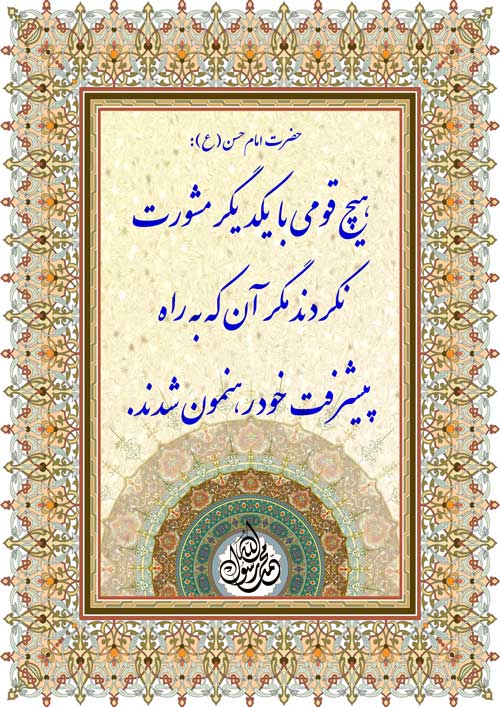 حضرت امام حسن (ع):
هیچ قومی با یکدیگر مشورت
نکردند مگر آن که به راه
پیشرفت خود رهنمون شدند.
محمد رسول الله